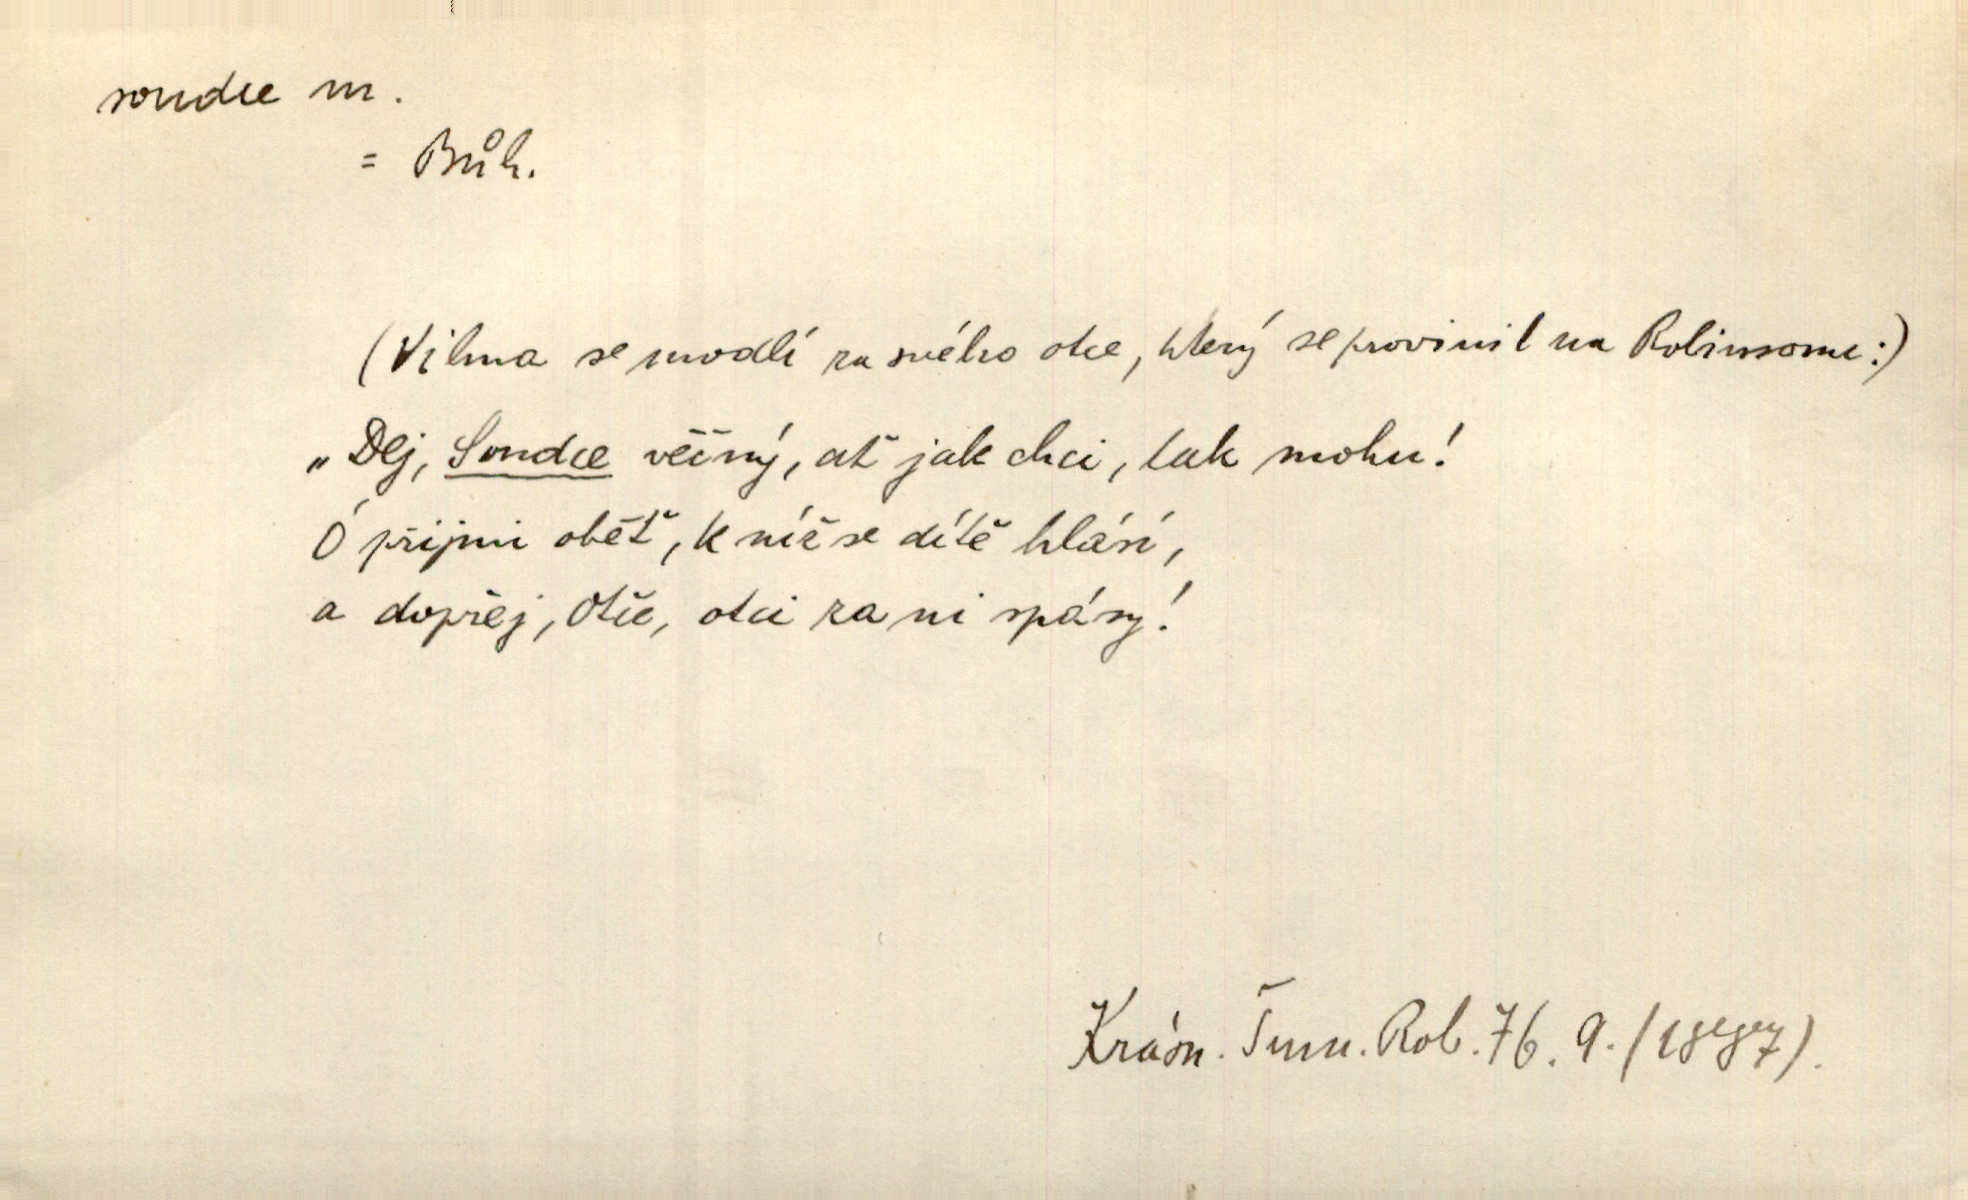 soudce m.
= Bůh.
(Vilma se modlí za svého otce, který se provinil na Robinsonu:)
„Dej, Soudce věčný, ať jak chci, tak mohu!
Ó přijmi oběť, k níž se dítě hlásí,
a dopřej, Otče, otci za ni spásy!
Krásn. Šum. Rob. 76. 9. (1887).